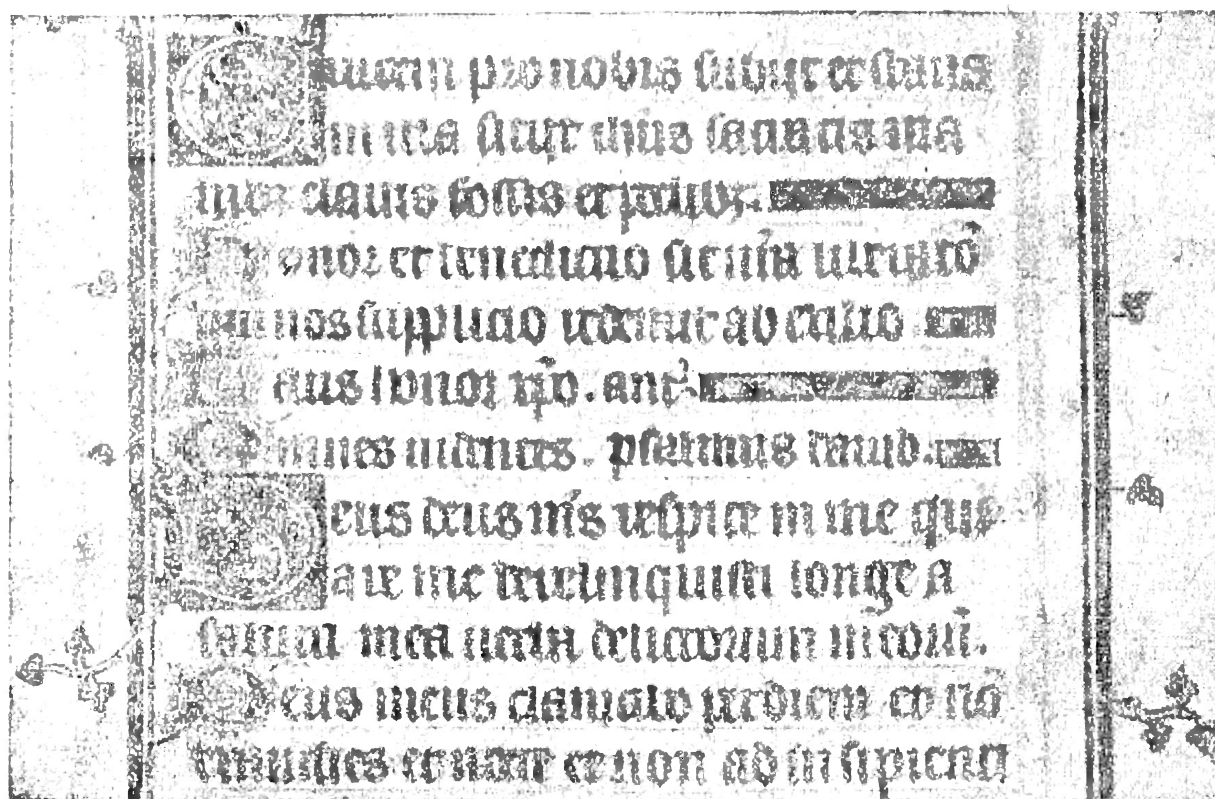 Crucem pro nobis subijt et stans
in illa sitijt ihus sacratis ma
clauis fossis et pedibz
Honor et benedictio sit
nos supplicio redemit ab exilio
Laus honor xpo. ant
Omnes uidentes. psalmus dauid.
Deus deus ms respice in me qua
are me dereliquisti longe a
salute mea uerba delictorum meoru.
Deus meus clamabo per diem et no
exaudies et nocte et non ad insipiencia